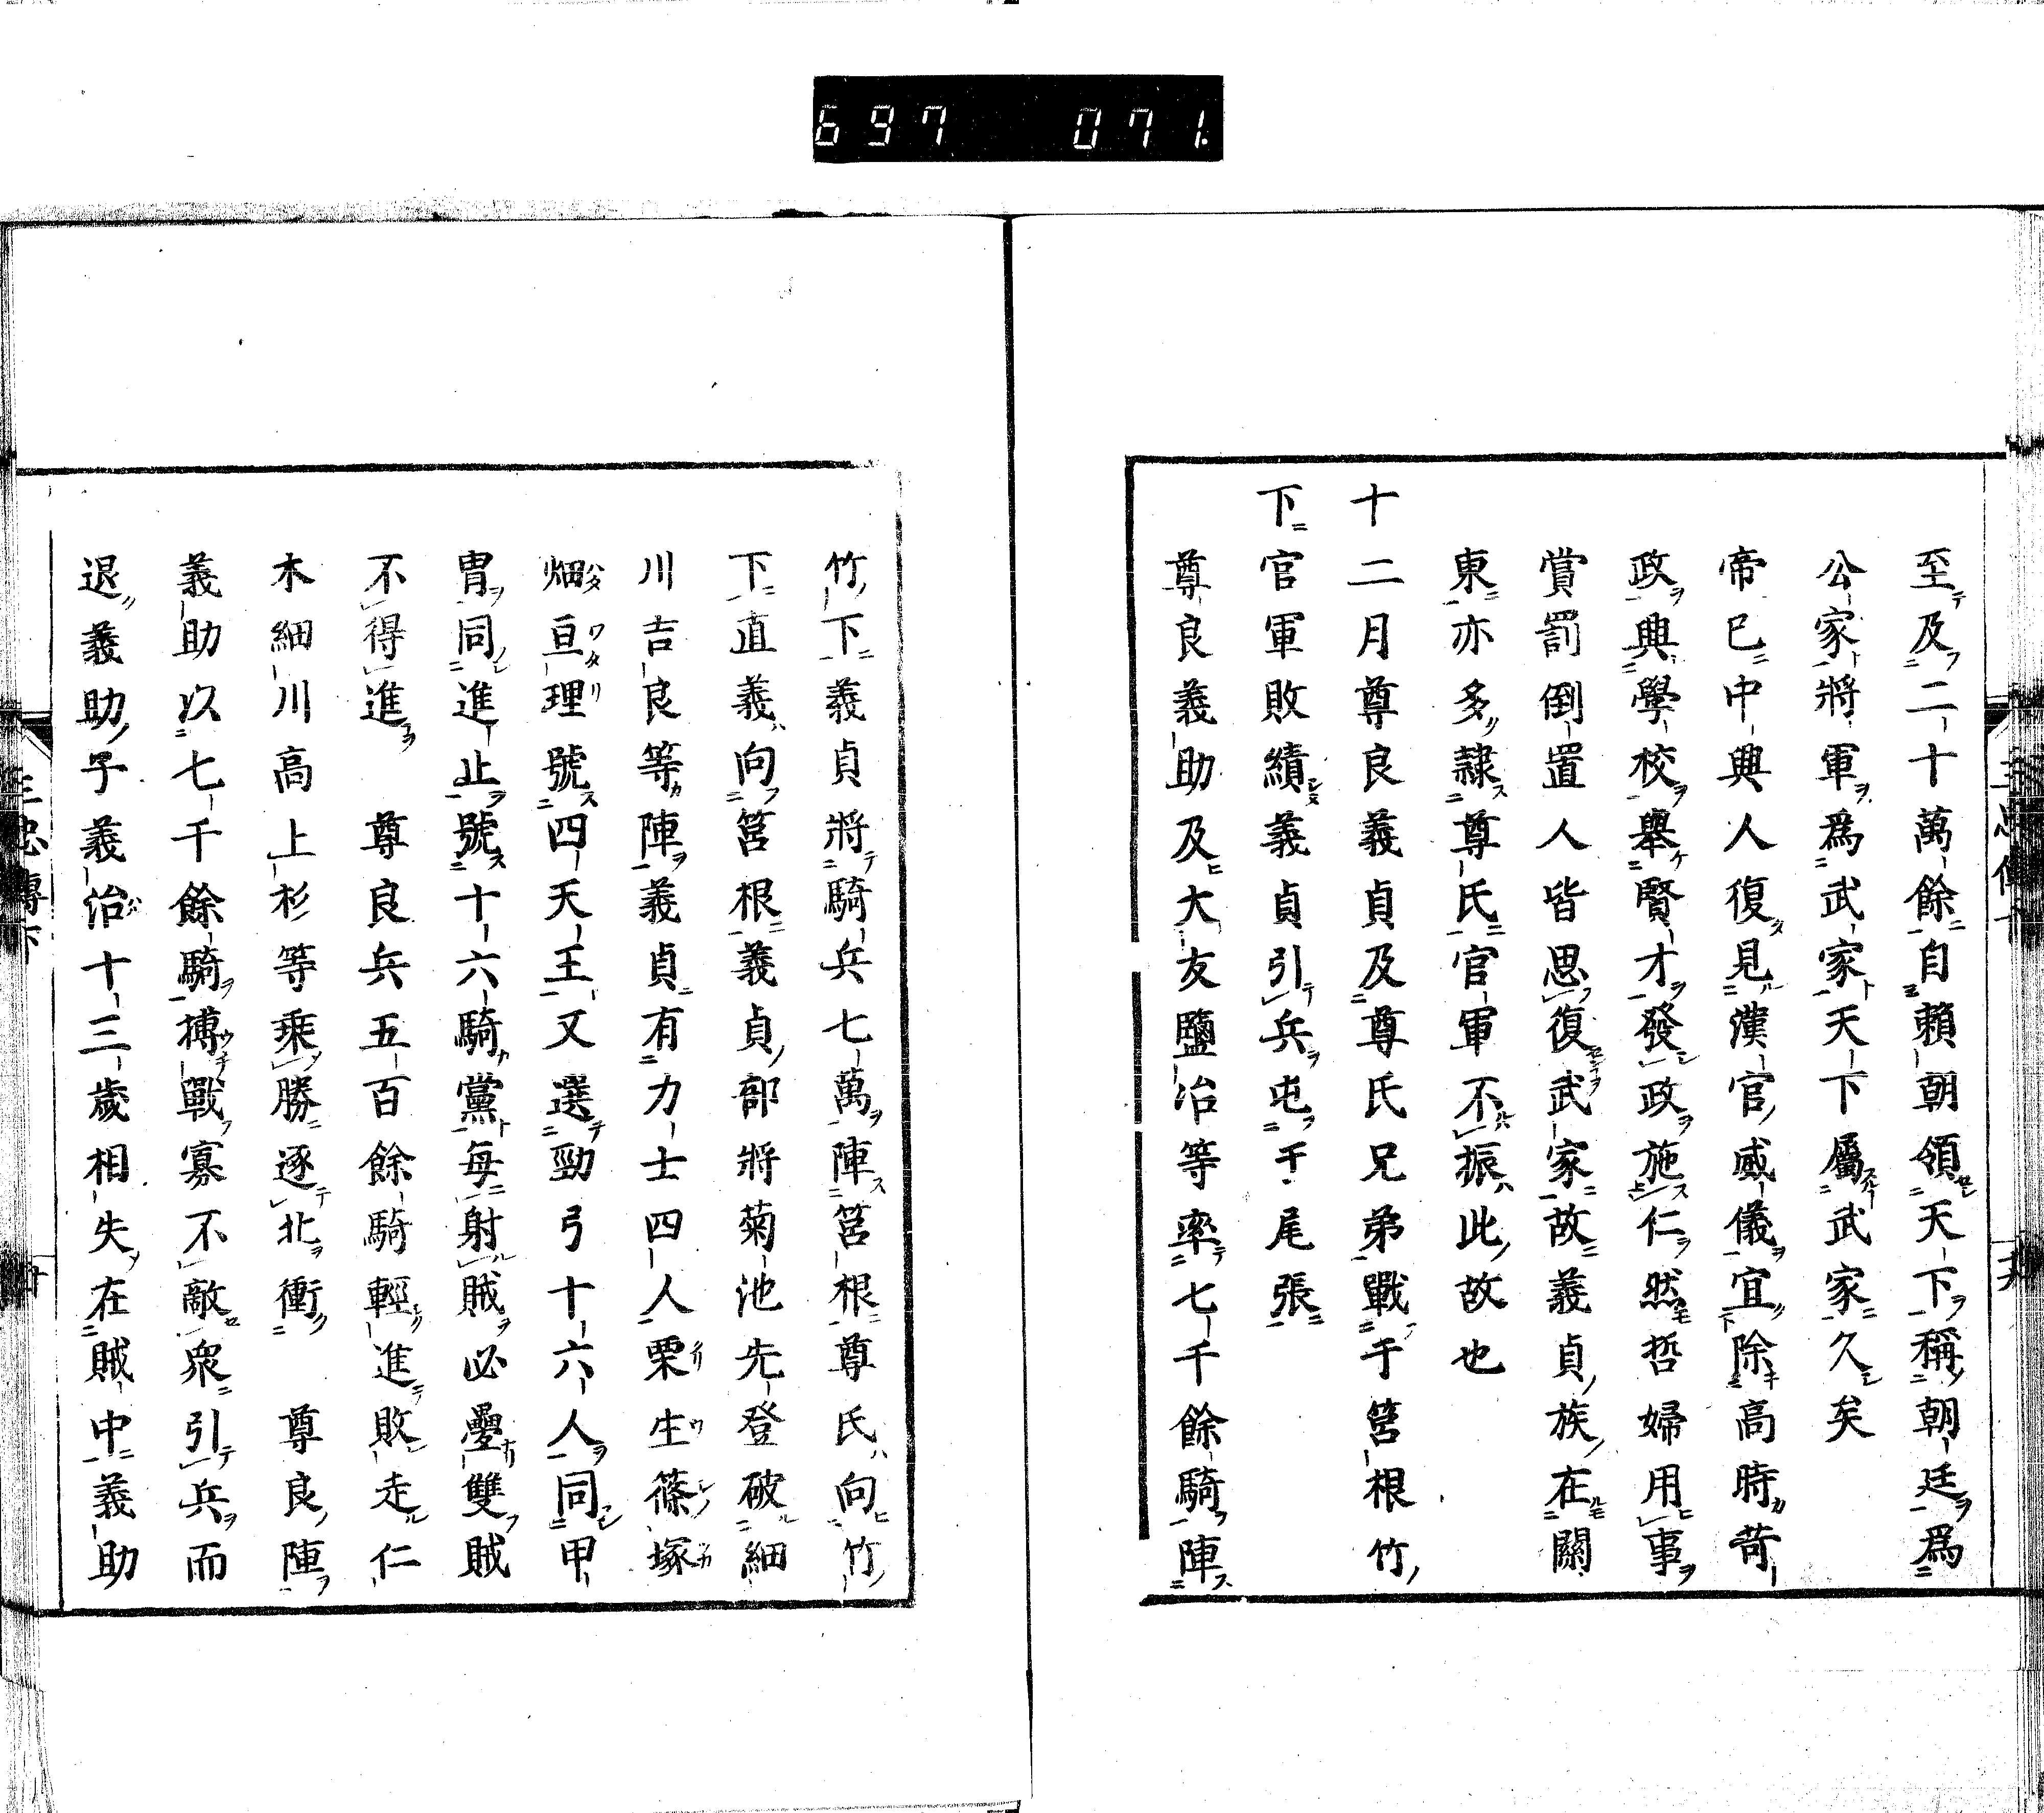 697 071.
至及二十萬餘自賴朝領天下稱朝廷爲
公家將軍爲武家天下屬武家久矣
帝已中興人復見漢官威儀宜除高時苛
政興學校舉賢才發政施仁然哲婦用事
賞罰倒置人皆思復武家故義貞族在關
東亦多隷尊氏官軍不振此故也
十二月尊良義貞及尊氏兄弟戰于筥根竹
下官軍敗績義貞引兵屯于尾張
尊良義助及大友鹽冶等率七千餘騎陣
竹下義貞將騎兵七萬陣筥根尊氏向竹
下直義向筥根義貞部將菊池先登破細
川吉良等陣義貞有力士四人栗生篠塚
畑亘理號四天王又選勁弓十六人同甲
冑同進止號十六騎黨每射賊必疊雙賊
不得進 尊良兵五百餘騎輕進敗走仁
木細川高上杉等乘勝逐北衝 尊良陣
義助以七千餘騎搏戰寡不敵衆引兵而
退義助子義治十三歲相失在賊中義助